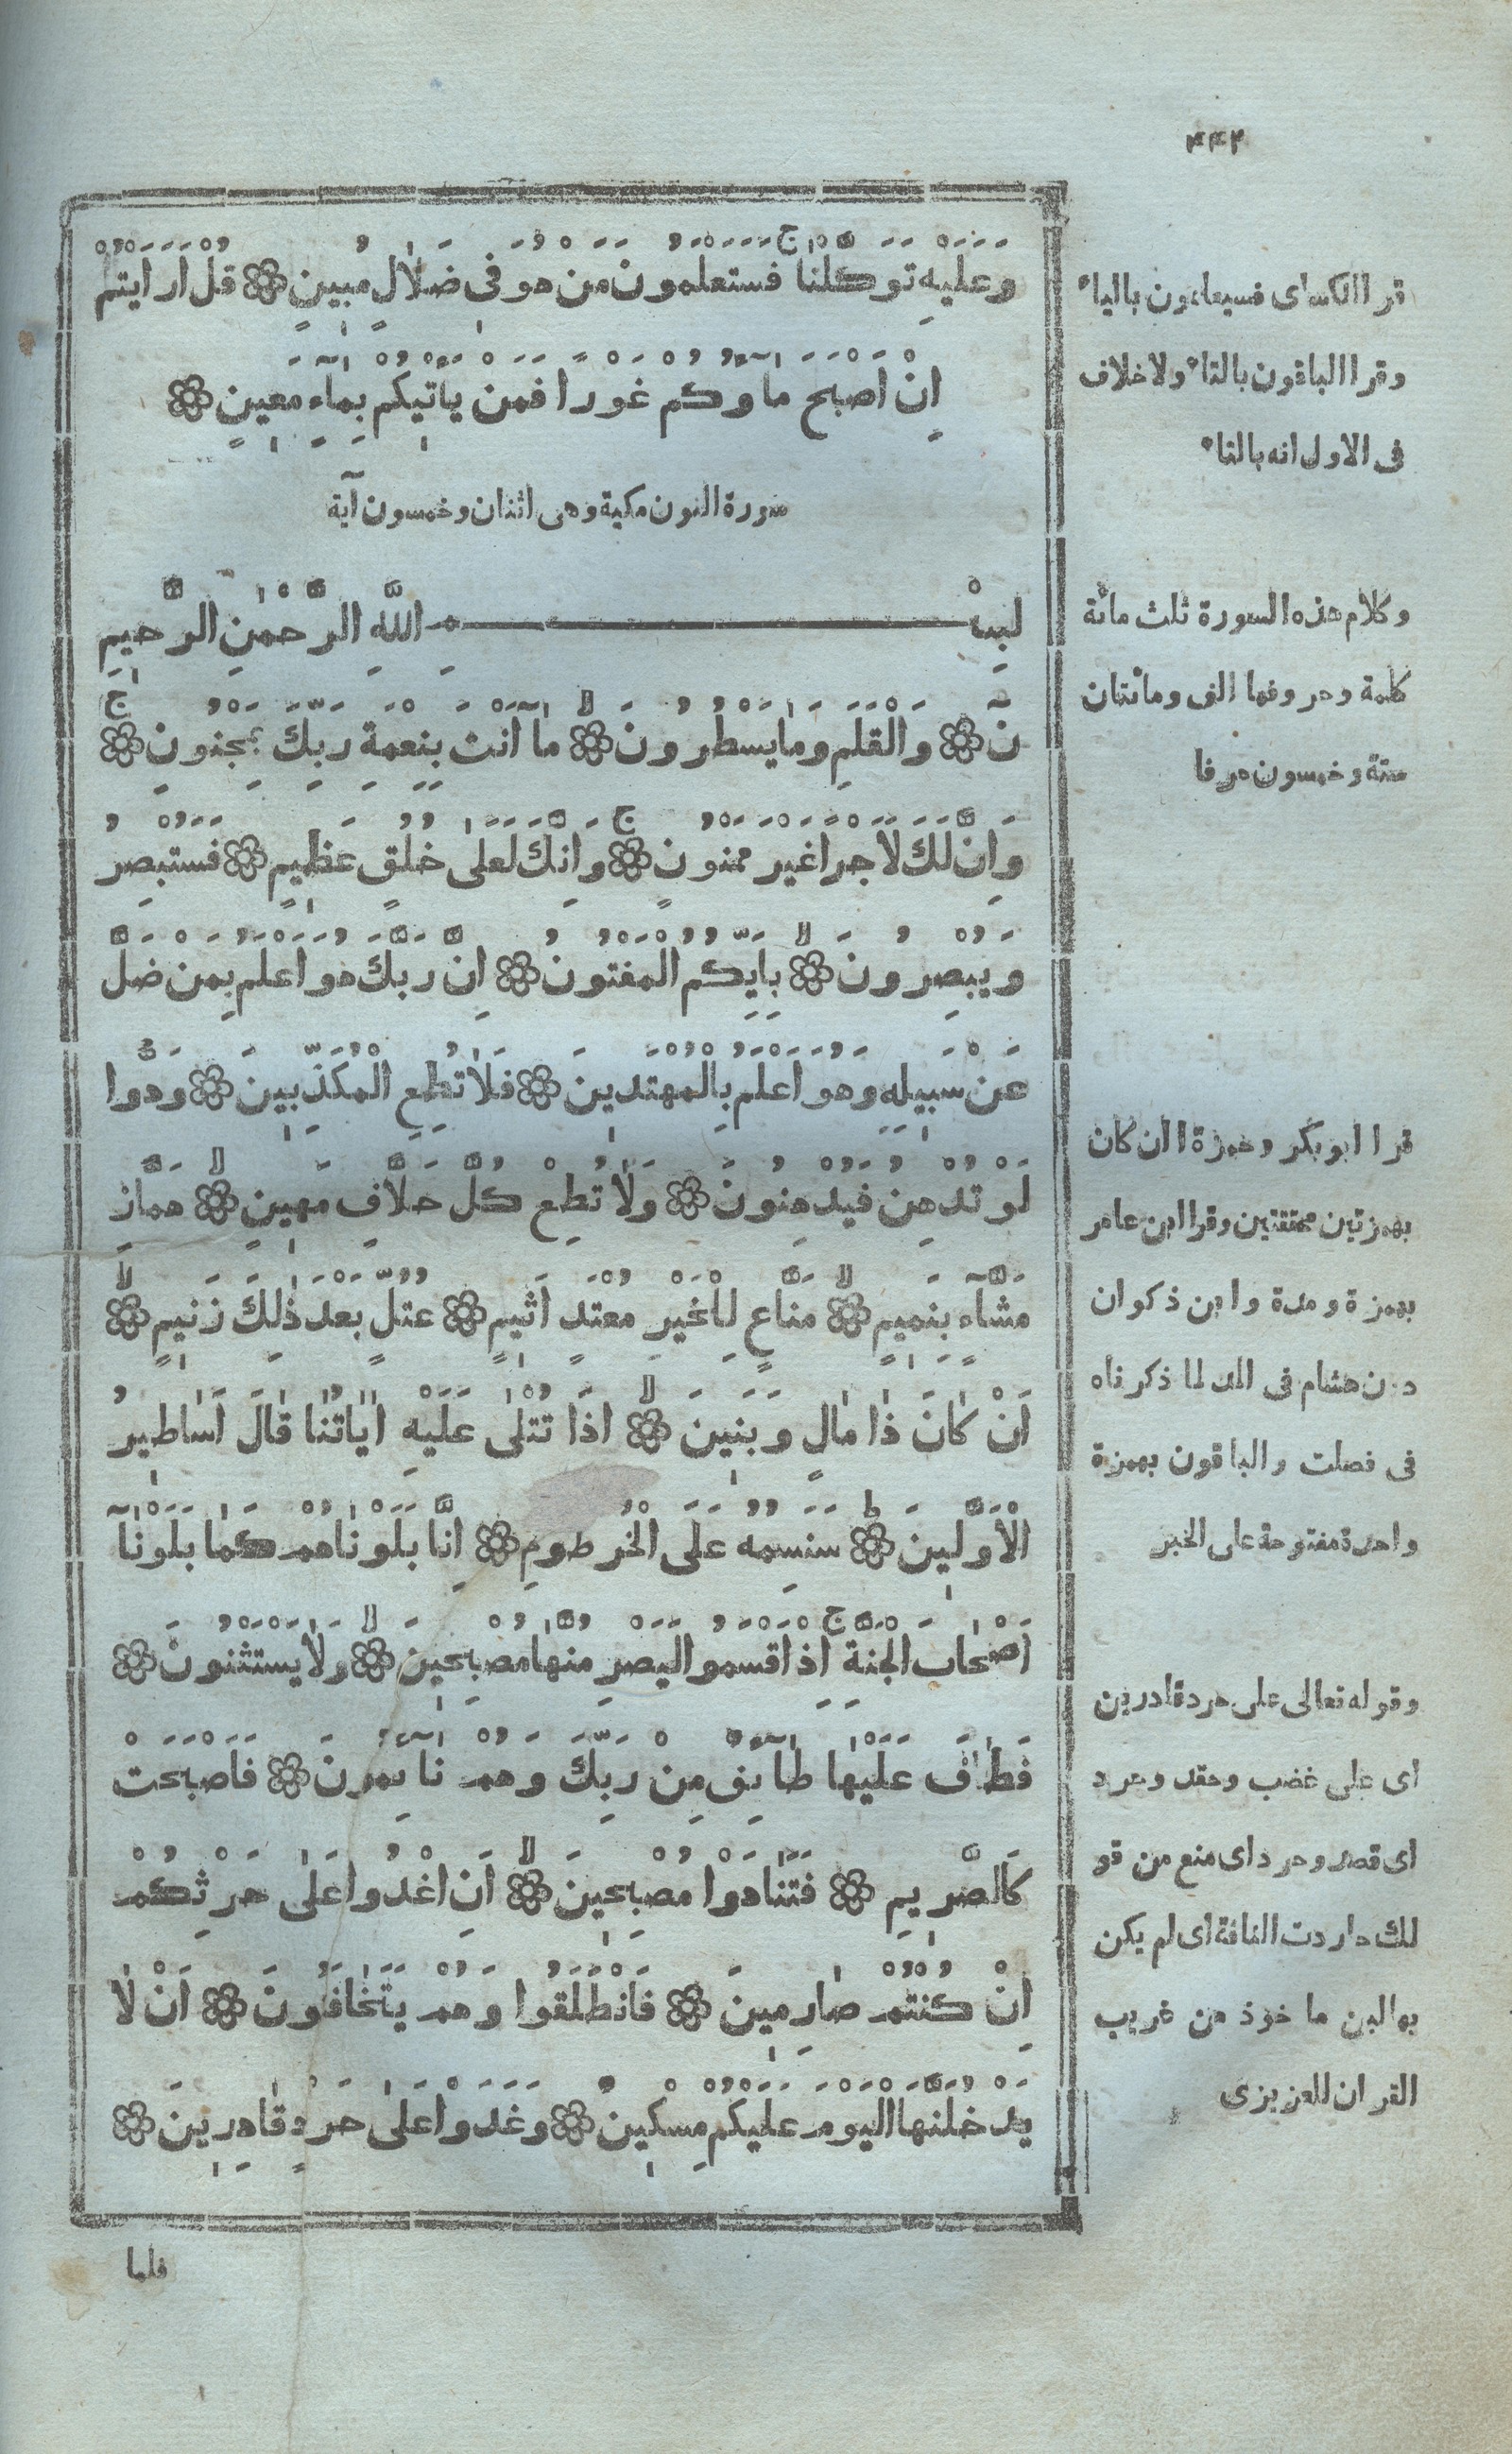 ۴۴۲
وَعَلَيْهِ تَوَكَّلْنٰاۚ فَسَتَعْلَمُونَ مَنْ هُوَ فٖى ضَلَالٍ مُبٖينٍ ۞ قُلْ اَرَاَيْتُمْ
اِنْ اَصْبَحَ مٰٓاؤُكُمْ غَوْرًا فَمَنْ يَاْتٖيكُمْ بِمٰٓاءٍ مَعٖينٍ ۞
سورة النون مكية وهى اثنان وخمسون آية
بِسْمِ اللَّهِ الرَّحْمٰنِ الرَّحٖيمِ
نٓ ۞ وَالْقَلَمِ وَمٰا يَسْطُرُونَۙ ۞ مٰٓا اَنْتَ بِنِعْمَةِ رَبِّكَ بِمَجْنُونٍۚ ۞
وَاِنَّ لَكَ لَاَجْرًا غَيْرَ مَمْنُونٍۚ ۞ وَاِنَّكَ لَعَلٰى خُلُقٍ عَظٖيمٍ ۞ فَسَتُبْصِرُ
وَيُبْصِرُونَۙ ۞ بِاَيِّكُمُ الْمَفْتُونُ ۞ اِنَّ رَبَّكَ هُوَ اَعْلَمُ بِمَنْ ضَلَّ
عَنْ سَبٖيلِهِ وَهُوَ اَعْلَمُ بِالْمُهْتَدٖينَ ۞ فَلَاٰ تُطِعِ الْمُكَذِّبٖينَ ۞ وَدُّوا
لَوْ تُدْهِنُ فَيُدْهِنُونَ ۞ وَلَاٰ تُطِعْ كُلَّ حَلَّافٍ مَهٖينٍۙ ۞ هَمَّازٍ
مَشَّآءٍ بِنَمٖيمٍۙ ۞ مَنَّاعٍ لِلْخَيْرِ مُعْتَدٍ اَثٖيمٍ ۞ عُتُلٍّ بَعْدَ ذٰلِكَ زَنٖيمٍۙ ۞
اَنْ كٰانَ ذٰا مٰالٍ وَبَنٖينَۙ ۞ اِذٰا تُتْلٰى عَلَيْهِ اٰيٰاتُنٰا قٰالَ اَسٰاطٖيرُ
الْاَوَّلٖينَؕ ۞ سَنَسِمُهُ عَلَى الْخُرْطُومِ ۞ اِنَّا بَلَوْنٰاهُمْ كَمٰا بَلَوْنٰٓا
اَصْحٰابَ الْجَنَّةِۚ اِذْ اَقْسَمُوا لَيَصْرِمُنَّهٰا مُصْبِحٖينَۙ ۞ وَلٰا يَسْتَثْنُونَ ۞
فَطٰافَ عَلَيْهٰا طٰٓائِفٌ مِنْ رَبِّكَ وَهُمْ نٰٓائِمُونَ ۞ فَاَصْبَحَتْ
كَالصَّرٖيمِ ۞ فَتَنٰادَوْا مُصْبِحٖينَۙ ۞ اَنِ اغْدُوا عَلٰى حَرْثِكُمْ
اِنْ كُنْتُمْ صٰارِمٖينَ ۞ فَانْطَلَقُوا وَهُمْ يَتَخٰافَتُونَ ۞ اَنْ لٰا
يَدْخُلَنَّهَا الْيَوْمَ عَلَيْكُمْ مِسْكٖينٌ ۞ وَغَدَوْا عَلٰى حَرْدٍ قٰادِرٖينَ ۞
فلما
قرا الكساى فسيعلمون بالياء
وقرا الباقون بالتاء ولا خلاف
فى الاول انه بالتاء
وكلام هذه السورة ثلث مائة
كلمة وحروفها الف ومائتان
ستة وخمسون حرفا
قرا ابو بكر وحمزة اان كان
بهمزتين محققتين وقرا ابن عامر
بهمزة ومدة وابن ذكوان
دون هشام فى المد لما ذكرناه
فى فصلت والباقون بهمزة
واحدة مفتوحة على الخبر
وقوله تعالى على حرد قادرين
اى على غضب وحقد وحرد
اى قصد وحرد اى منع من قو
لك حاردت الناقة اى لم يكن
بها لبن ماخوذ من غريب
القران للعزيزى